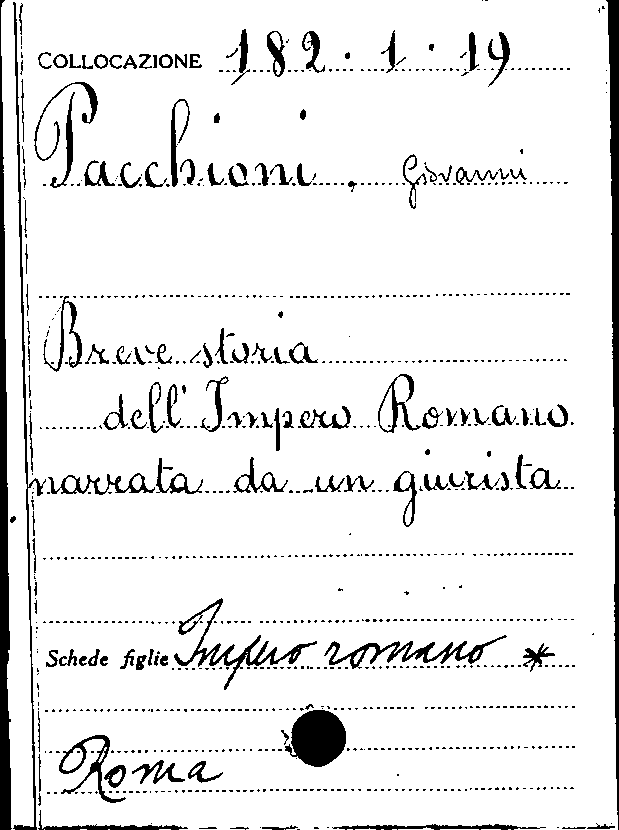 COLLOCAZIONE 182·1·19
Pacchioni, Giovanni
Breve storia
dell'Impero Romano
narrata da un giurista
Schede figlie Impero romano *
Roma